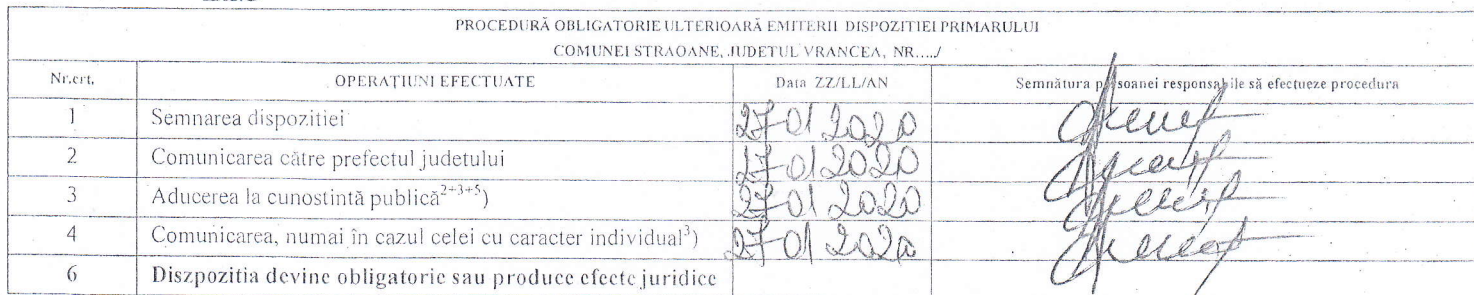 PROCEDURĂ OBLIGATORIE ULTERIOARĂ EMITERII DISPOZITIEI PRIMARULUI
COMUNEI STRAOANE, JUDETUL VRANCEA, NR…../
Nr.crt. OPERAȚIUNI EFECTUATE Data ZZ/LL/AN Semnătura persoanei responsabile să efectueze procedura
1 Semnarea dispozitiei 27 01 2020
2 Comunicarea către prefectul judetului 27 01 2020
3 Aducerea la cunostintă publică2+3+5) 27 01 2020
4 Comunicarea, numai în cazul celei cu caracter individual3) 27 01 2020
6 Diszpozitia devine obligatorie sau produce efecte juridice